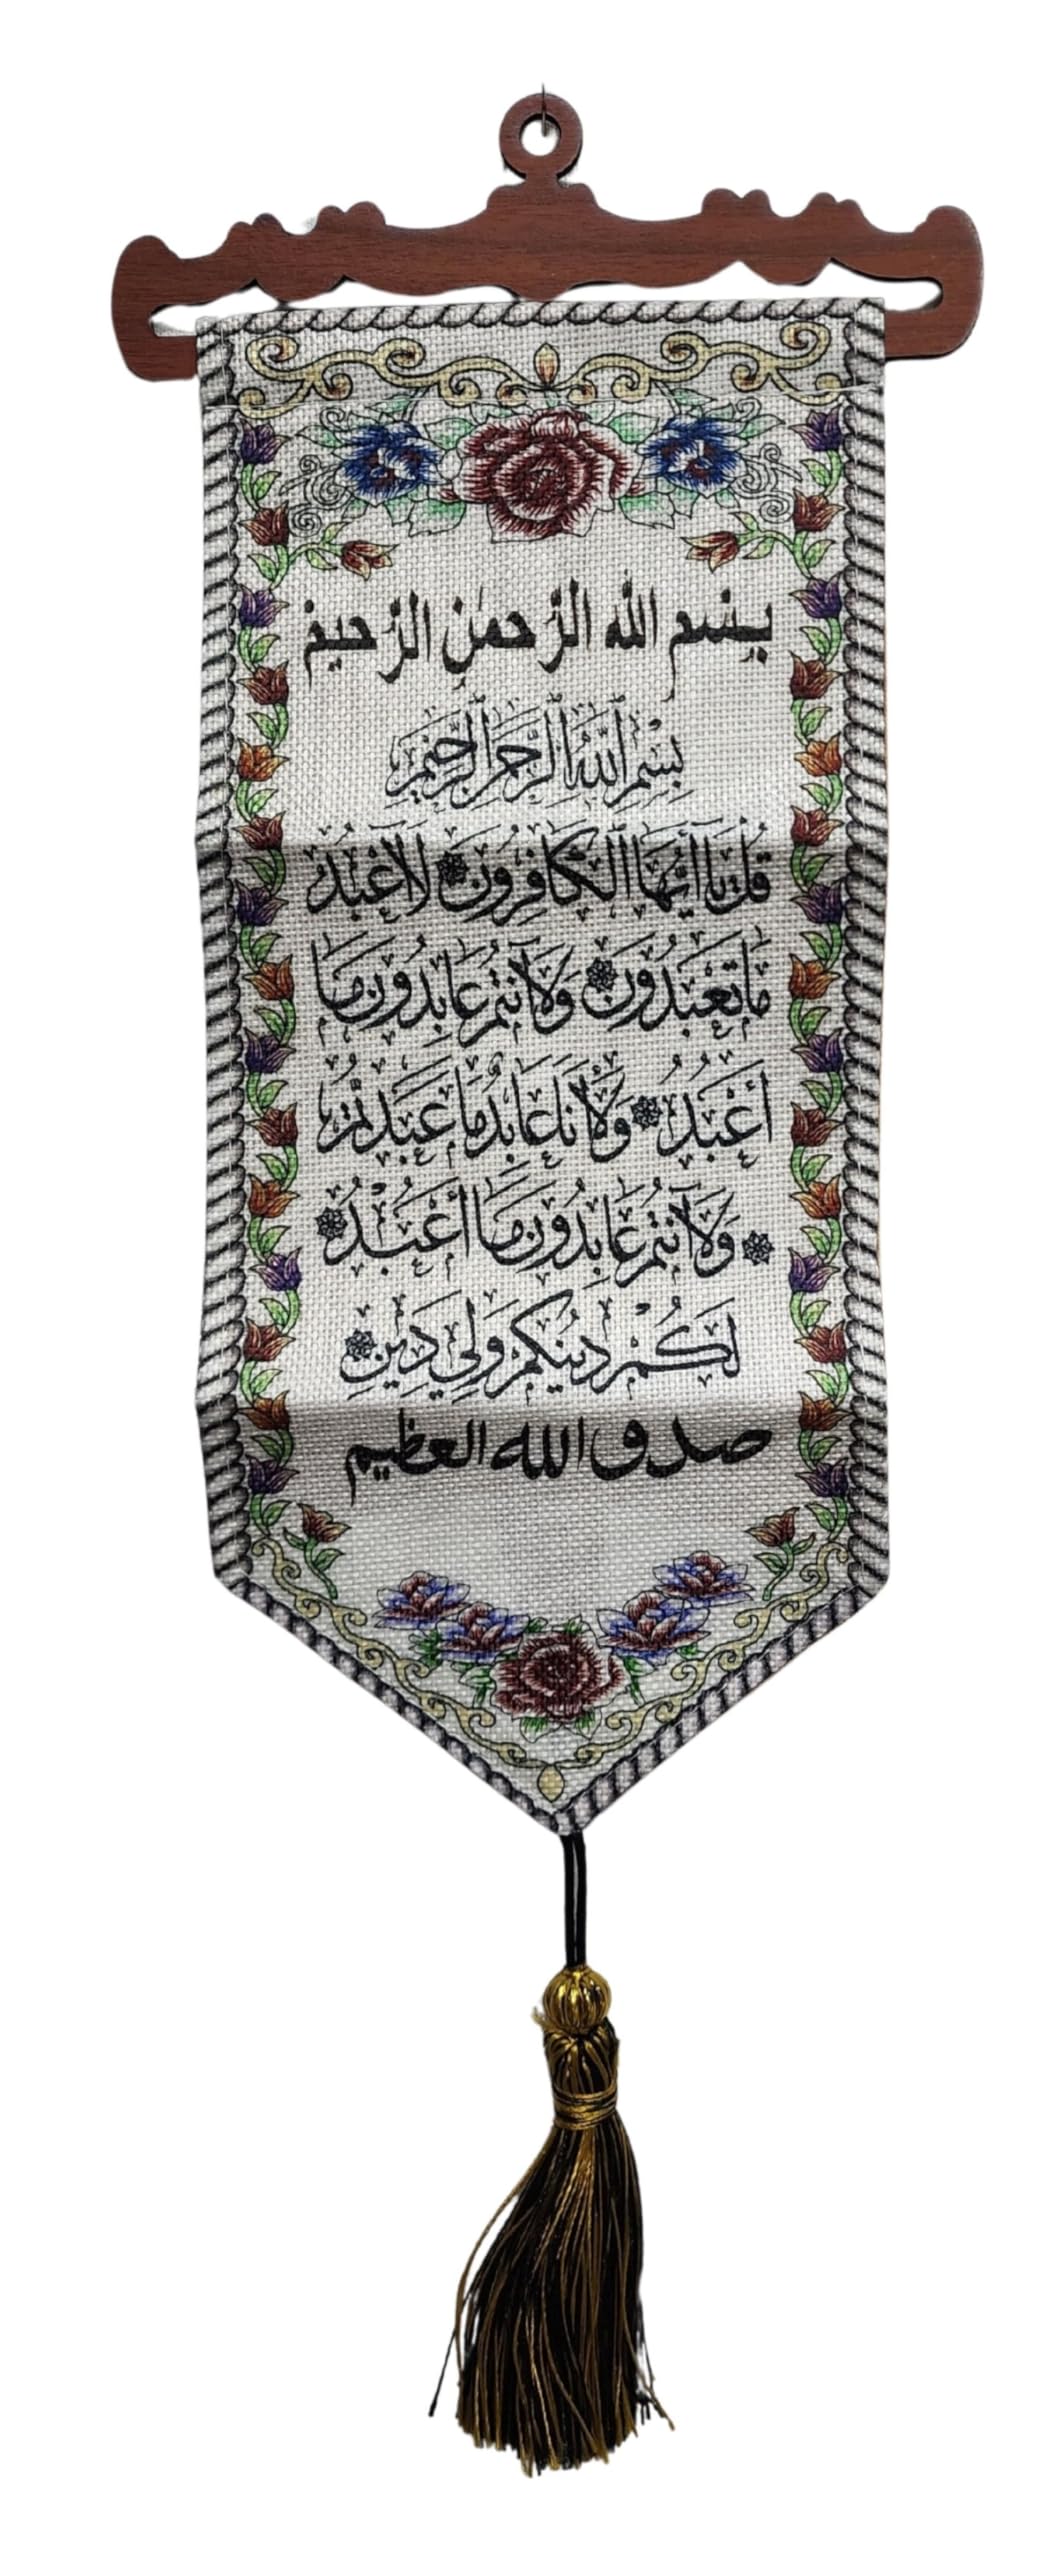 بسم الله الرحمن الرحيم
بِسْمِ اللَّهِ الرَّحْمَٰنِ الرَّحِيمِ
قُلْ يَا أَيُّهَا الْكَافِرُونَ ۞ لَا أَعْبُدُ
مَا تَعْبُدُونَ ۞ وَلَا أَنْتُمْ عَابِدُونَ مَا
أَعْبُدُ ۞ وَلَا أَنَا عَابِدٌ مَا عَبَدْتُمْ
۞ وَلَا أَنْتُمْ عَابِدُونَ مَا أَعْبُدُ ۞
لَكُمْ دِينُكُمْ وَلِيَ دِينِ ۞
صدق الله العظيم